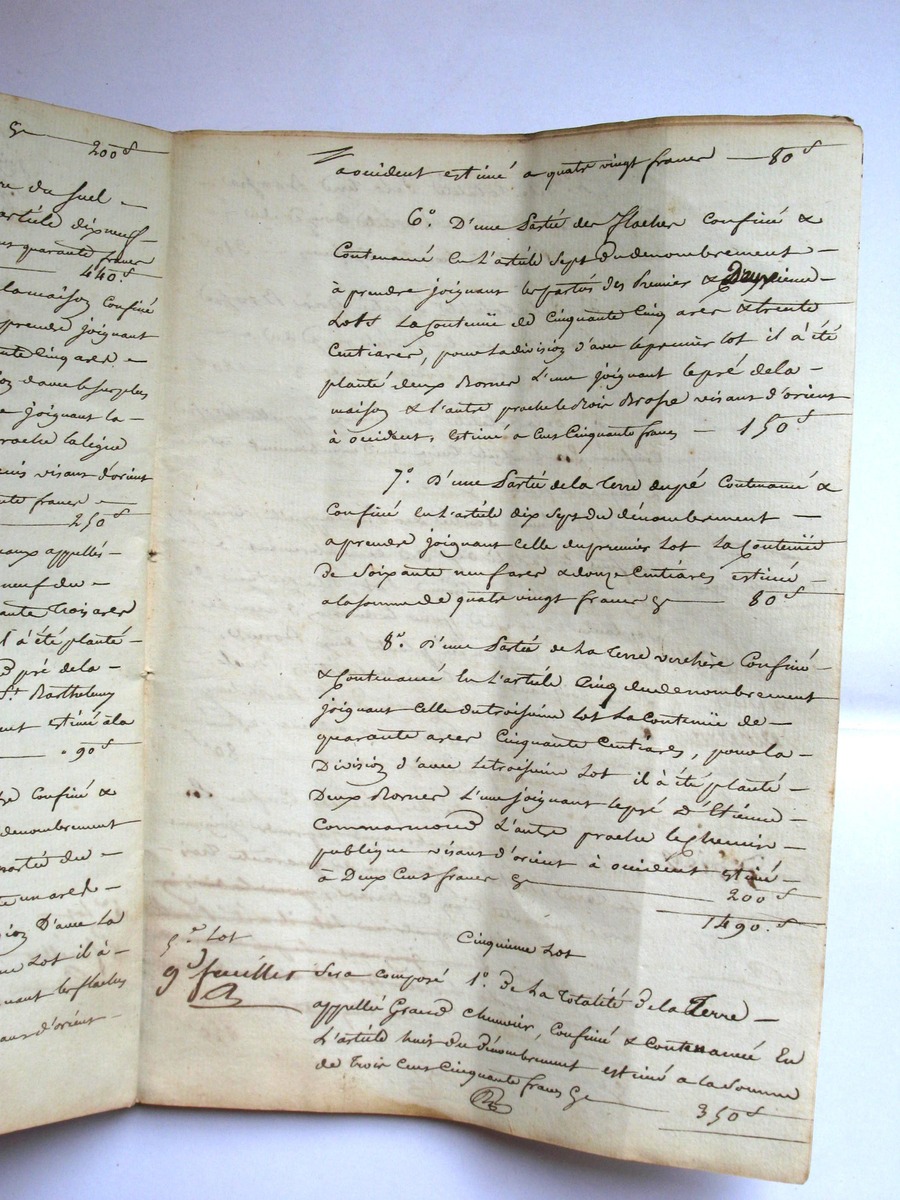 200 f
re du suel
article dix neuf
quarante francs
440 f
la maison confiné
prendre joignant
cinq ares
d'avec le surplus
joignant la
proche la ligne
visant d'orient
francs
250 f
appellés
neuf du
trois ares
il a été planté
pré de la
St. Barthelemy
estimé à la
90 f
confiné &
denombrement
partie du
un ares
d'avec la
Lot il à
joignant les flaches
d'orient
accident estimé a quatre vingt francs 80 f
6°. D'une Partie des flaches Confiné &
Contenancé en L'article Sept du denombrement
à prendre joignant les parties des Premier & Deuxieme
Lots La Contenüe de Cinquante Cinq ares & trente
Centiares, pour la division d'avec le premier lot il à été
planté deux Bornes L'une joignant le pré de la
maison & l'autre proche le Bois Brosse visant d'orient
à occident, Estimé a Cent Cinquante francs 150 f
7°. D'une Partie de la Terre du pé Contenancé &
Confiné en L'article dix Sept du dénombrement
a prendre joignant celle du premier Lot La Contenüe
de Soixante neuf ares & douze Centiares estimé
a la somme de quatre vingt francs 80 f
8°. D'une Partie de La Terre verchère Confiné
& Contenancé En L'article Cinq du denombrement
joignant Celle du troisieme Lot La Contenüe de
quarante ares Cinquante Centiares, pour la
Division d'avec Le troisieme Lot il à été planté
Deux Bornes L'une joignant le pré D'Etienne
Commarmond L'autre proche le Chemin
publique visant d'orient à occident estimé
à Deux Cent francs 200 f
1490 f
5e Lot
Cinquieme Lot
9e feuillet
Sera composé 1°. de La Totalité de la Terre
appellée Grand Chenevier, Confiné & Contenancé En
L'article huit du dénombrement estimé a la Somme
de Trois Cent Cinquante francs 350 f